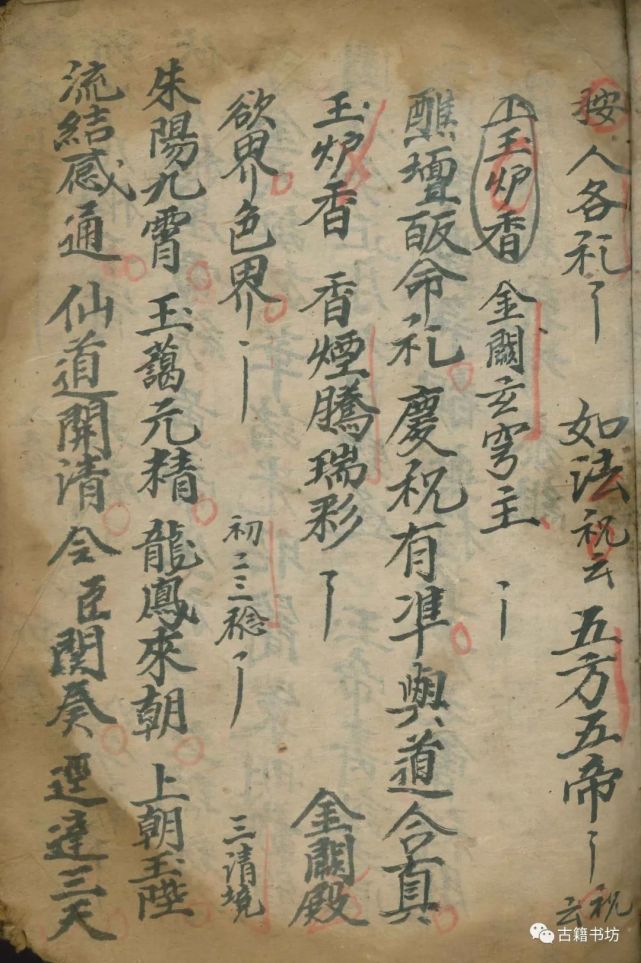 按人各礼 如法祝云 五方五帝 祝云
玉炉香 金闕玄穹主
醮壇皈命礼 慶祝有準與道合真
玉炉香 香煙騰瑞彩 金闕殿
欲界色界 初二三稔 三清境
朱陽九霄 玉藹元精 龍鳳來朝 上朝玉陛
流結感通 仙道開清 令臣関奏 逕達三天
古籍书坊